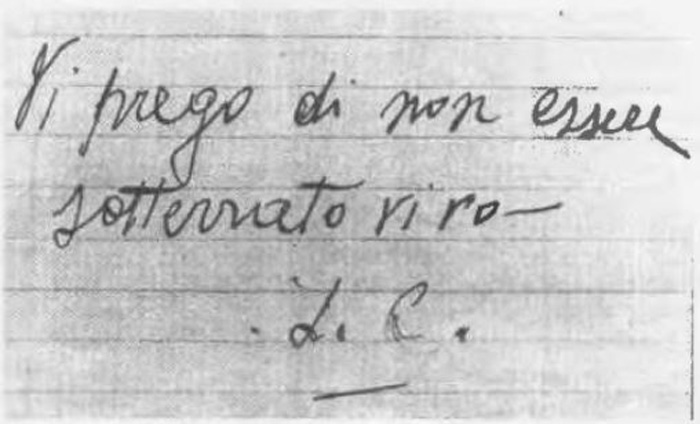 Vi prego di non essere
sotterrato vivo—
L. C.